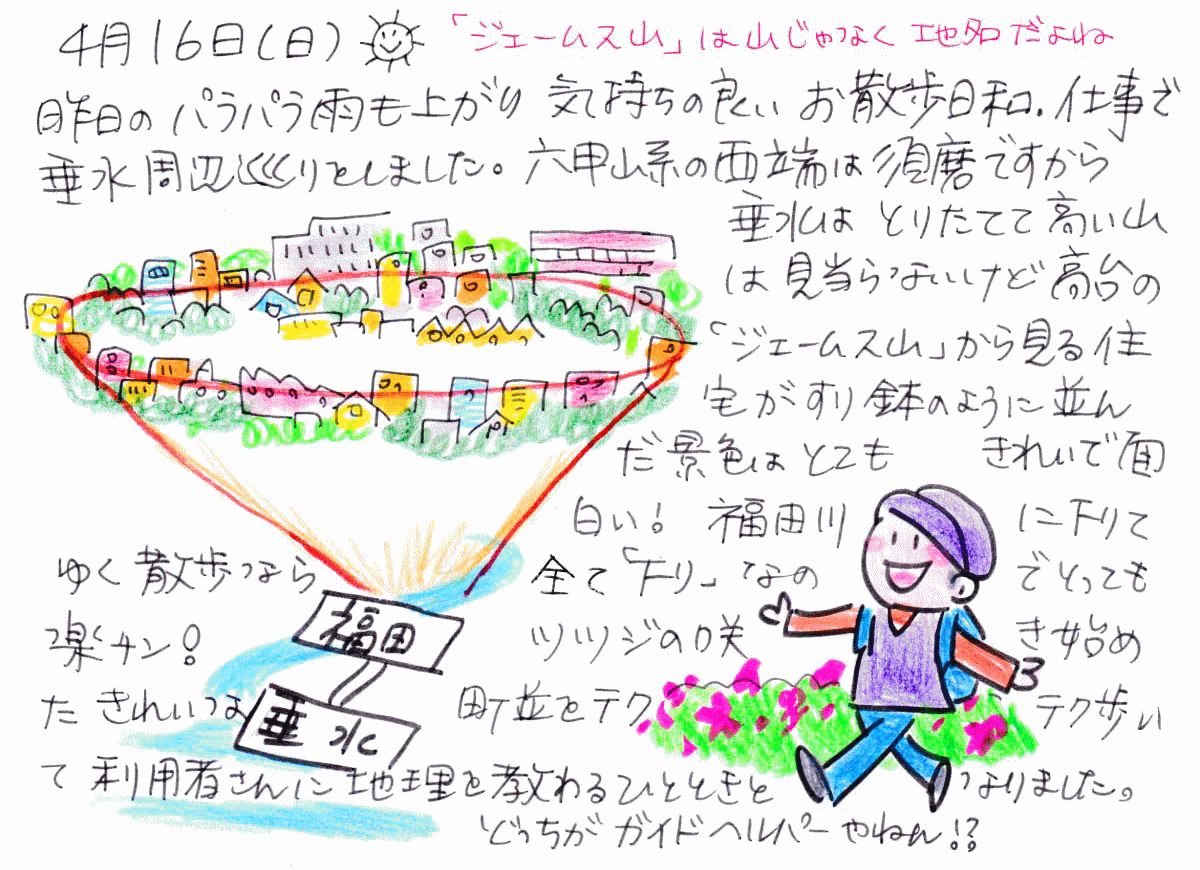 4月16日(日) 「ジェームス山」は山じゃなく地名だよね
昨日のパラパラ雨も上がり 気持ちの良い お散歩日和.仕事で
垂水周辺巡りをしました。六甲山系の西端は須磨ですから
垂水は とりたてて高い山
は見当らないけど高台の
「ジェームス山」から見る住
宅がすり鉢のように並ん
だ景色は とても きれいで面
白い! 福田川 に下りて
ゆく散歩なら 全て「下り」なの でとっても
楽チン! ツツジの咲 き始め
た きれいな 町並をテク テク歩い
て利用者さんに地理を教わるひとときと なりました。
どっちが ガイドヘルパーやねん!?
福田
垂水